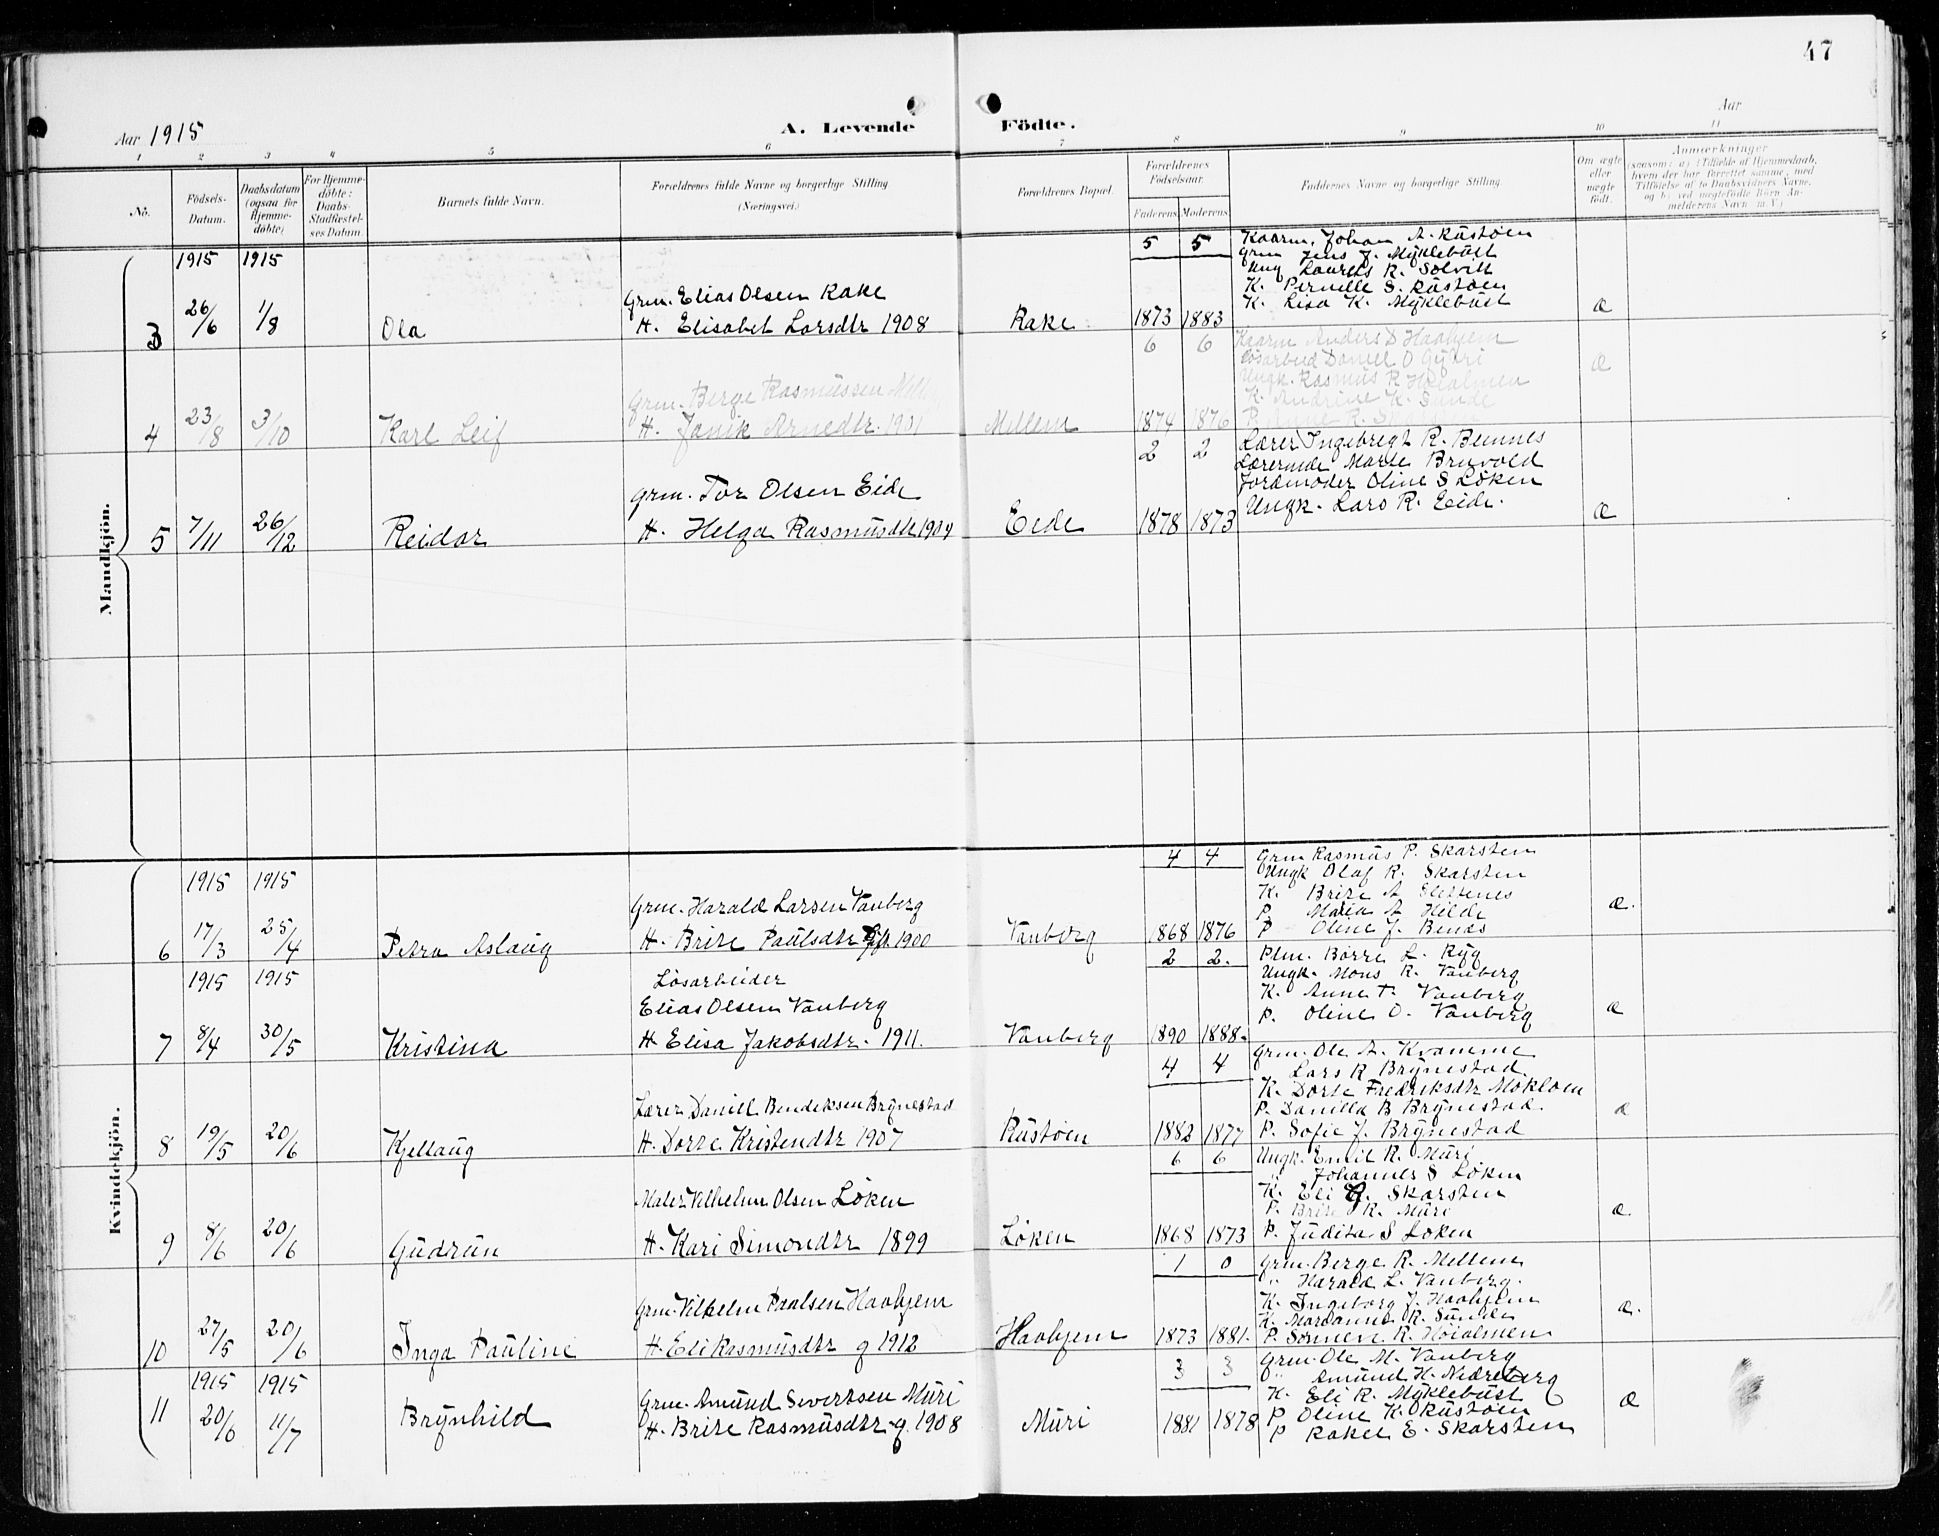 47
Aar 1915
A. Levende Födte.
Aar
1 2 3 4 5 6 7 8 9 10 11
No.
Födsels-
Datum.
Daabsdatum
(ogsaa for
Hjemme-
döbte)
For Hjemme-
döbte:
Daabs-
Stadfæstel-
ses Datum.
Barnets fulde Navn.
Forældrenes fulde Navne og borgerlige Stilling
(Næringsvei.)
Forældrenes Bopæl.
Forældrenes
Födselsaar.
Faderens Moderens
Faddernes Navne og borgerlige Stilling.
Om ægte
eller
uægte
födt.
Anmærkninger
(saasom: a) i Tilfælde af Hjemmedaab,
hvem der har forrettet samme, med
Tilföielse af to Daabsvidners Navne,
og b) ved uægtefödte Börn An-
melderens Navn m. V.)
Mandkjön.
1915 1915
3 26/6 1/8 Ola
Grm. Elias Olsen Rake
H. Elisabet Larsdtr 1908
Rake
5 5
1873 1883
Kaarm. Johan A. Rustøen
Grm Jens J. Myklebust
Ung Laurits R. Solvik
K. Pernille S. Rustøen
K. Lisa K. Myklebust
æ
4 23/8 3/10 Karl Leif
Grm. Berge Rasmussen
H. Arnedtr. 1901
Mellem
6 6
1874 1876
Kaarm Anders D Haahjem
Løsarbeid Daniel O Gytri
Ungk. Rasmus R Høialmen
K. Andrine K. Sunde
æ
5 7/11 26/12 Reidar
Grm. Tor Olsen Eide
H. Helga Rasmusdtr 1904
Eide
2 2
1878 1873
Lærer Ingebregt R. Bennes
Lærerinde Marte Bruvold
Jordmoder Oline S Løken
Ungk. Lars R. Eide.
æ
Kvindekjön.
1915 1915
6 17/3 25/4 Petra Aslaug
Grm. Harald Larsen Vanberg
H. Brite Paulsdtr gift 1900
Vanberg
4 4
1868 1876
Grm Rasmus P. Skarsten
Ungk Olaf R. Skarsten
K. Brite A Slettenes
P. Maria A Hilde
P Oline J. Benas
æ.
1915 1915
7 8/4 30/5 Kristina
Løsarbeider
Elias Olsen Vanberg
H Elisa Jakobsdtr. 1911.
Vanberg
2 2.
1890 1888.
Plm. Børre L. Ryg
Ungk. Mons R. Vanberg
K. Anne T. Vanberg
P. Oline O. Vanberg
æ
8 19/5 20/6 Kjellaug
Lærer Daniel Bendiksen Brynestad
H. Dorte Kristendtr 1907
Rustøen
4 4
1882 1877
Grm. Ole A. Kvamme
Lars R Brynestad.
K. Dorte Fredriksdtr Mokloen
P. Danilla B Brynestad.
P. Sofie J. Brynestad
æ
9 8/6 20/6 Gudrun
Maler Vilhelm Olsen Løken
H. Kari Simondtr 1899
Løken
6 6
1868 1873
Ungk. Emil R. Muri
" Johannes S Løken
K. Eli G. Skarsten
P. Brite R. Muri
P. Judita S Løken
æ.
10 27/5 20/6 Inga Pauline
Grm. Vilhelm Paalsen Haahjem
H. Eli Rasmusdtr g 1912
Haahjem
1 0
1873 1881.
Grm. Berge R. Mellem
" Harald L. Vanberg.
K. Ingeborg J. Haahjem
K. Mordanna R. Sunde
P. Sønneve R. Høialmen
æ.
1915 1915
11 20/6 11/7 Brynhild
Grm. Amund Severtsen Muri
H. Brite Rasmusdtr g. 1908
Muri
3 3
1881 1878
Grm. Ole M. Vanberg
" Amund H. Nedreberg
K. Eli R. Myklebust
P Oline K. Rustøen
P Rakel E. Skarsten
æ